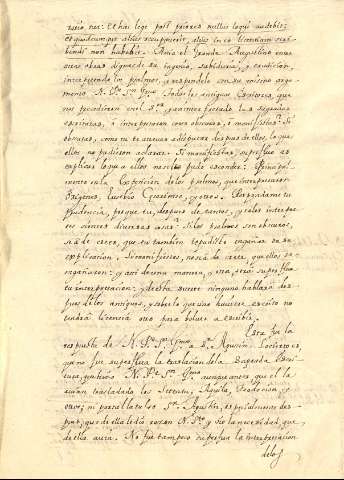 nullus loqui audebit;
et quicumque alius
bendi non habebit. Avia el Grande Augustino entre
otras obras dignas de su ingenio, sabiduria, y erudicion,
interpretado los psalmos, y respondele con su mismo argu-
mento N. Pe. Sn. Todos los antiguos Escritores, que
nos precedieron en el Sor. y an interpretado las sagradas
escrituras, ò interpretaron cosas obscuras, ò manifiestas. Si
obscuras, como tu te atreves despues de ellos, lo que
ellos no pudieron aclarar. Si manifiestas, superfluo es
explicar lo que a ellos no se les pudo esconder. Principal
mente en la Exposicion de los psalmos, que interpretaron
Origenes, Eusebio Cesariense, y otros. Respondame tu
prudencia, porque tu, despues de tantos, y tales interpre
tes sientes diversas cosas. Si los psalmos son obscuros,
sea de creer, que tu tambien te pudiste engañar en su
explicacion. Si manifiestos, no sea de creer, que ellos se
engañaron: y asi de una manera, y otra, sera superflua
tu interpretacion: y de esta suerte ninguno hablara des
pues de los antiguos, y sobre lo que uno huviere escrito no
tendrà licencia otro para bolver a escribir.
Esta fue la
respuesta de N. Pe. Sn. a Sn. Agustin. Lo cierto es,
que no fue superflua la traslacion de la Sagrada Escri
tura, que hizo N. Pe. Sn. aunque antes que el la
avian trasladado los Setenta, Aquila, Teodocion, y
otros; ni para el la tuvo Sn. Agustin, especialmente des
pues, que de ella le dio razon N. Pe. y vio la necesidad, que
de ella avia. No fue tampoco superflua la interpretacion
de los